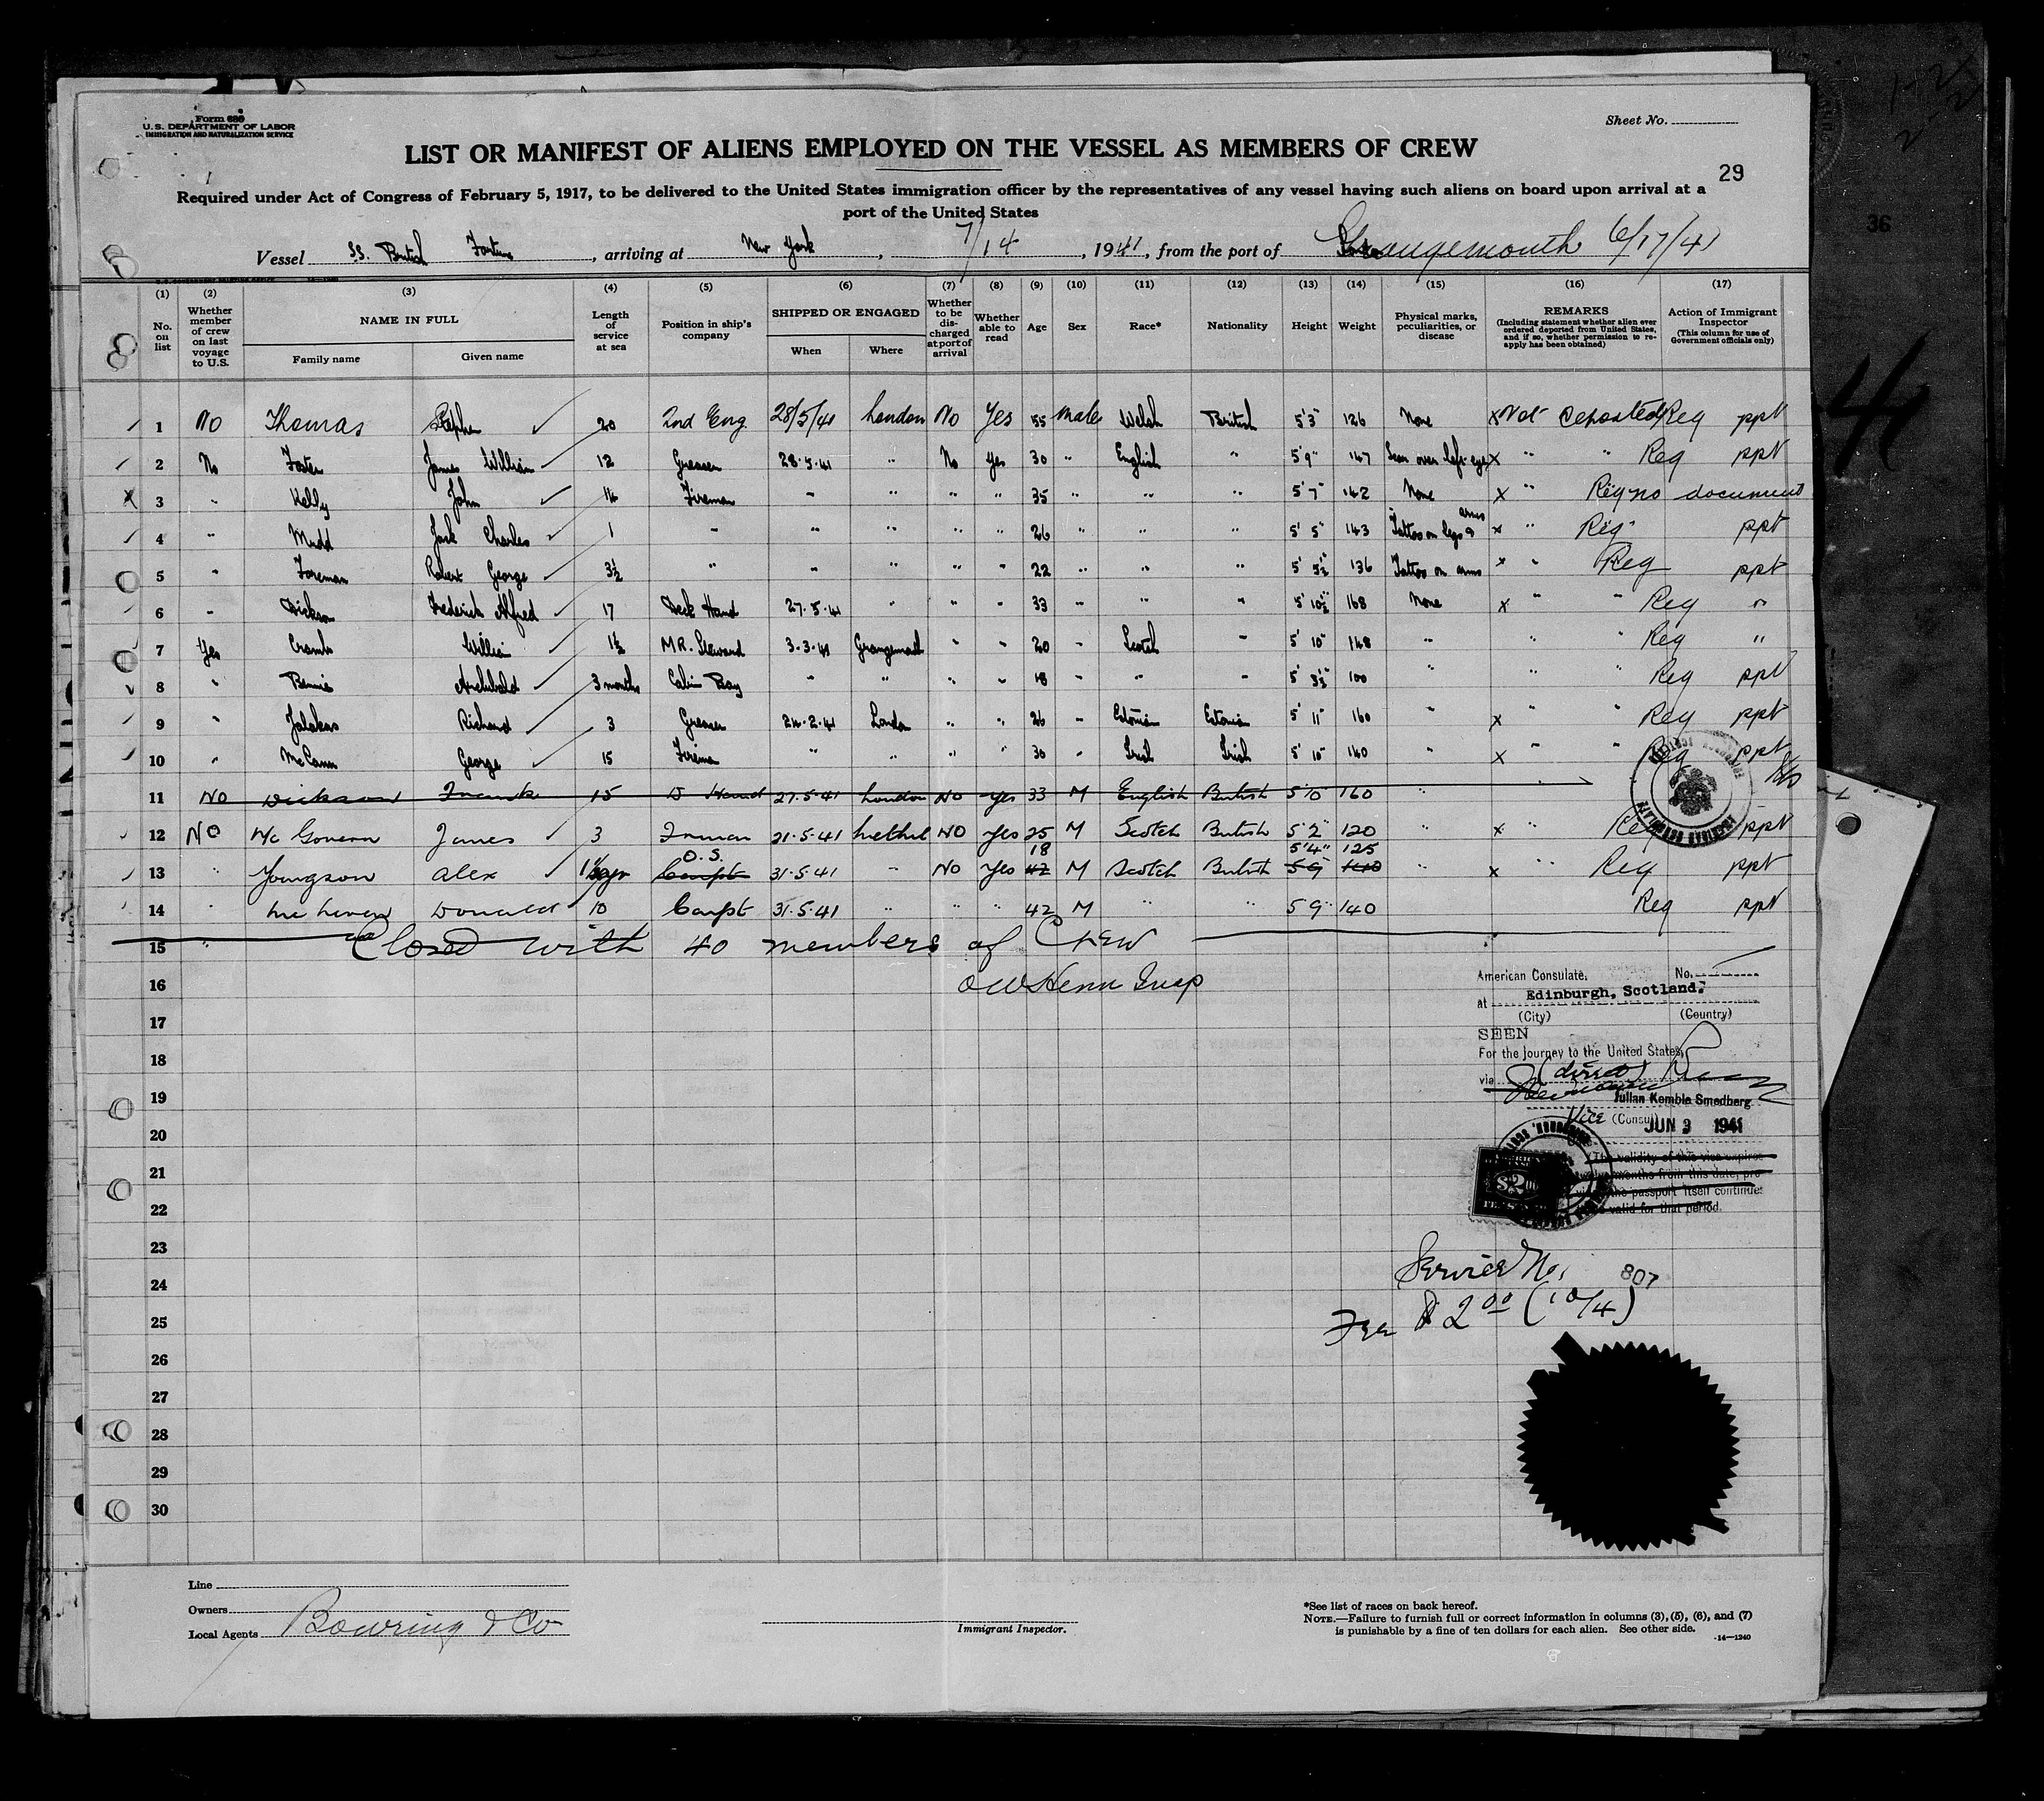 Form 680
U.S. DEPARTMENT OF LABOR
IMMIGRATION AND NATURALIZATION SERVICE
Sheet No.
LIST OR MANIFEST OF ALIENS EMPLOYED ON THE VESSEL AS MEMBERS OF CREW
29
Required under Act of Congress of February 5, 1917, to be delivered to the United States immigration officer by the representatives of any vessel having such aliens on board upon arrival at a
port of the United States
Vessel S.S. British Fortune, arriving at New York, 7/14, 1941, from the port of Grangemouth 6/17/41
36
(1) (2) (3) (4) (5) (6) (7) (8) (9) (10) (11) (12) (13) (14) (15) (16) (17)
No. on list
Whether member of crew on last voyage to U.S.
NAME IN FULL
Family name
Given name
Length of service at sea
Position in ship's company
SHIPPED OR ENGAGED
When
Where
Whether to be discharged at port of arrival
Whether able to read
Age
Sex
Race*
Nationality
Height
Weight
Physical marks, peculiarities, or disease
REMARKS
(Including statement whether alien ever ordered deported from United States, and if so, whether permission to re-apply has been obtained)
Action of Immigrant Inspector
(This column for use of Government officials only)
1 No Thomas Stephen 20 2nd Eng. 28/5/41 London No Yes 55 Male Welsh British 5'3" 126 None x Not deported Reg ppt
2 No Foster James William 12 Greaser 28.5.41 " No Yes 30 " English " 5'9" 147 Scar over left eye x " " Reg ppt
3 " Kelly John 14 Fireman " " " " 35 " " " 5'7" 142 None x " Reg no document
4 " Mudd Jack Charles 1 " " " " " 26 " " " 5'5" 143 Tattoo on legs & arms x " Reg ppt
5 " Foreman Robert George 3½ " " " " " 22 " " " 5'5½" 136 Tattoo on arms x " Reg ppt
6 " Dickson Frederick Alfred 17 Deck Hand 27.5.41 " " " 33 " " " 5'10½" 168 None x " " Reg "
7 Yes Crombi William 1½ M R. Steward 3.3.41 Grangemouth " " 20 " Scotch " 5'10" 148 " " " Reg "
8 " Bennie Archibald 3 months Cabin Boy " " " " 18 " " " 5'3½" 100 " " " Reg ppt
9 " Jalakas Richard 3 Greaser 24.2.41 London " " 26 " Estonian Estonia 5'11" 160 " x " " Reg ppt
10 " McCann George 15 Fireman " " " " 30 " Irish Irish 5'10" 140 " x " " Reg ppt
11 No Dickson Frank 15 D Hand 27.5.41 London No Yes 33 M English British 5'10" 160 "
12 No Mc Govern James 3 Fireman 21.5.41 Methil No Yes 25 M Scotch British 5'2" 120 " x " Reg ppt
O.S. 18 5'4" 125
13 " Youngson Alex Carpt 31.5.41 " No Yes 42 M Scotch British 5 9" 140 " x " Reg ppt
14 " Donald 10 Carpt 31.5.41 " " " 42 M " " 5 9" 140 Reg ppt
15 " Closed with 40 members of Crew
16
17
18
19
20
21
22
23
24
25
26
27
28
29
30
American Consulate, No.
at Edinburgh, Scotland.
(City) (Country)
SEEN
For the journey to the United States,
via (direct)
Julian Kemble Smedberg
Vice (Consul)
JUN 3 1941
(The validity of this visa expires
months from this date, pro-
the passport itself continues
valid for that period.
Service No. 807
Fee $ 2.00 (10/4)
Line
Owners
Local Agents Bowring & Co
Immigrant Inspector.
*See list of races on back hereof.
NOTE.—Failure to furnish full or correct information in columns (3), (5), (6), and (7)
is punishable by a fine of ten dollars for each alien. See other side.
14—1240